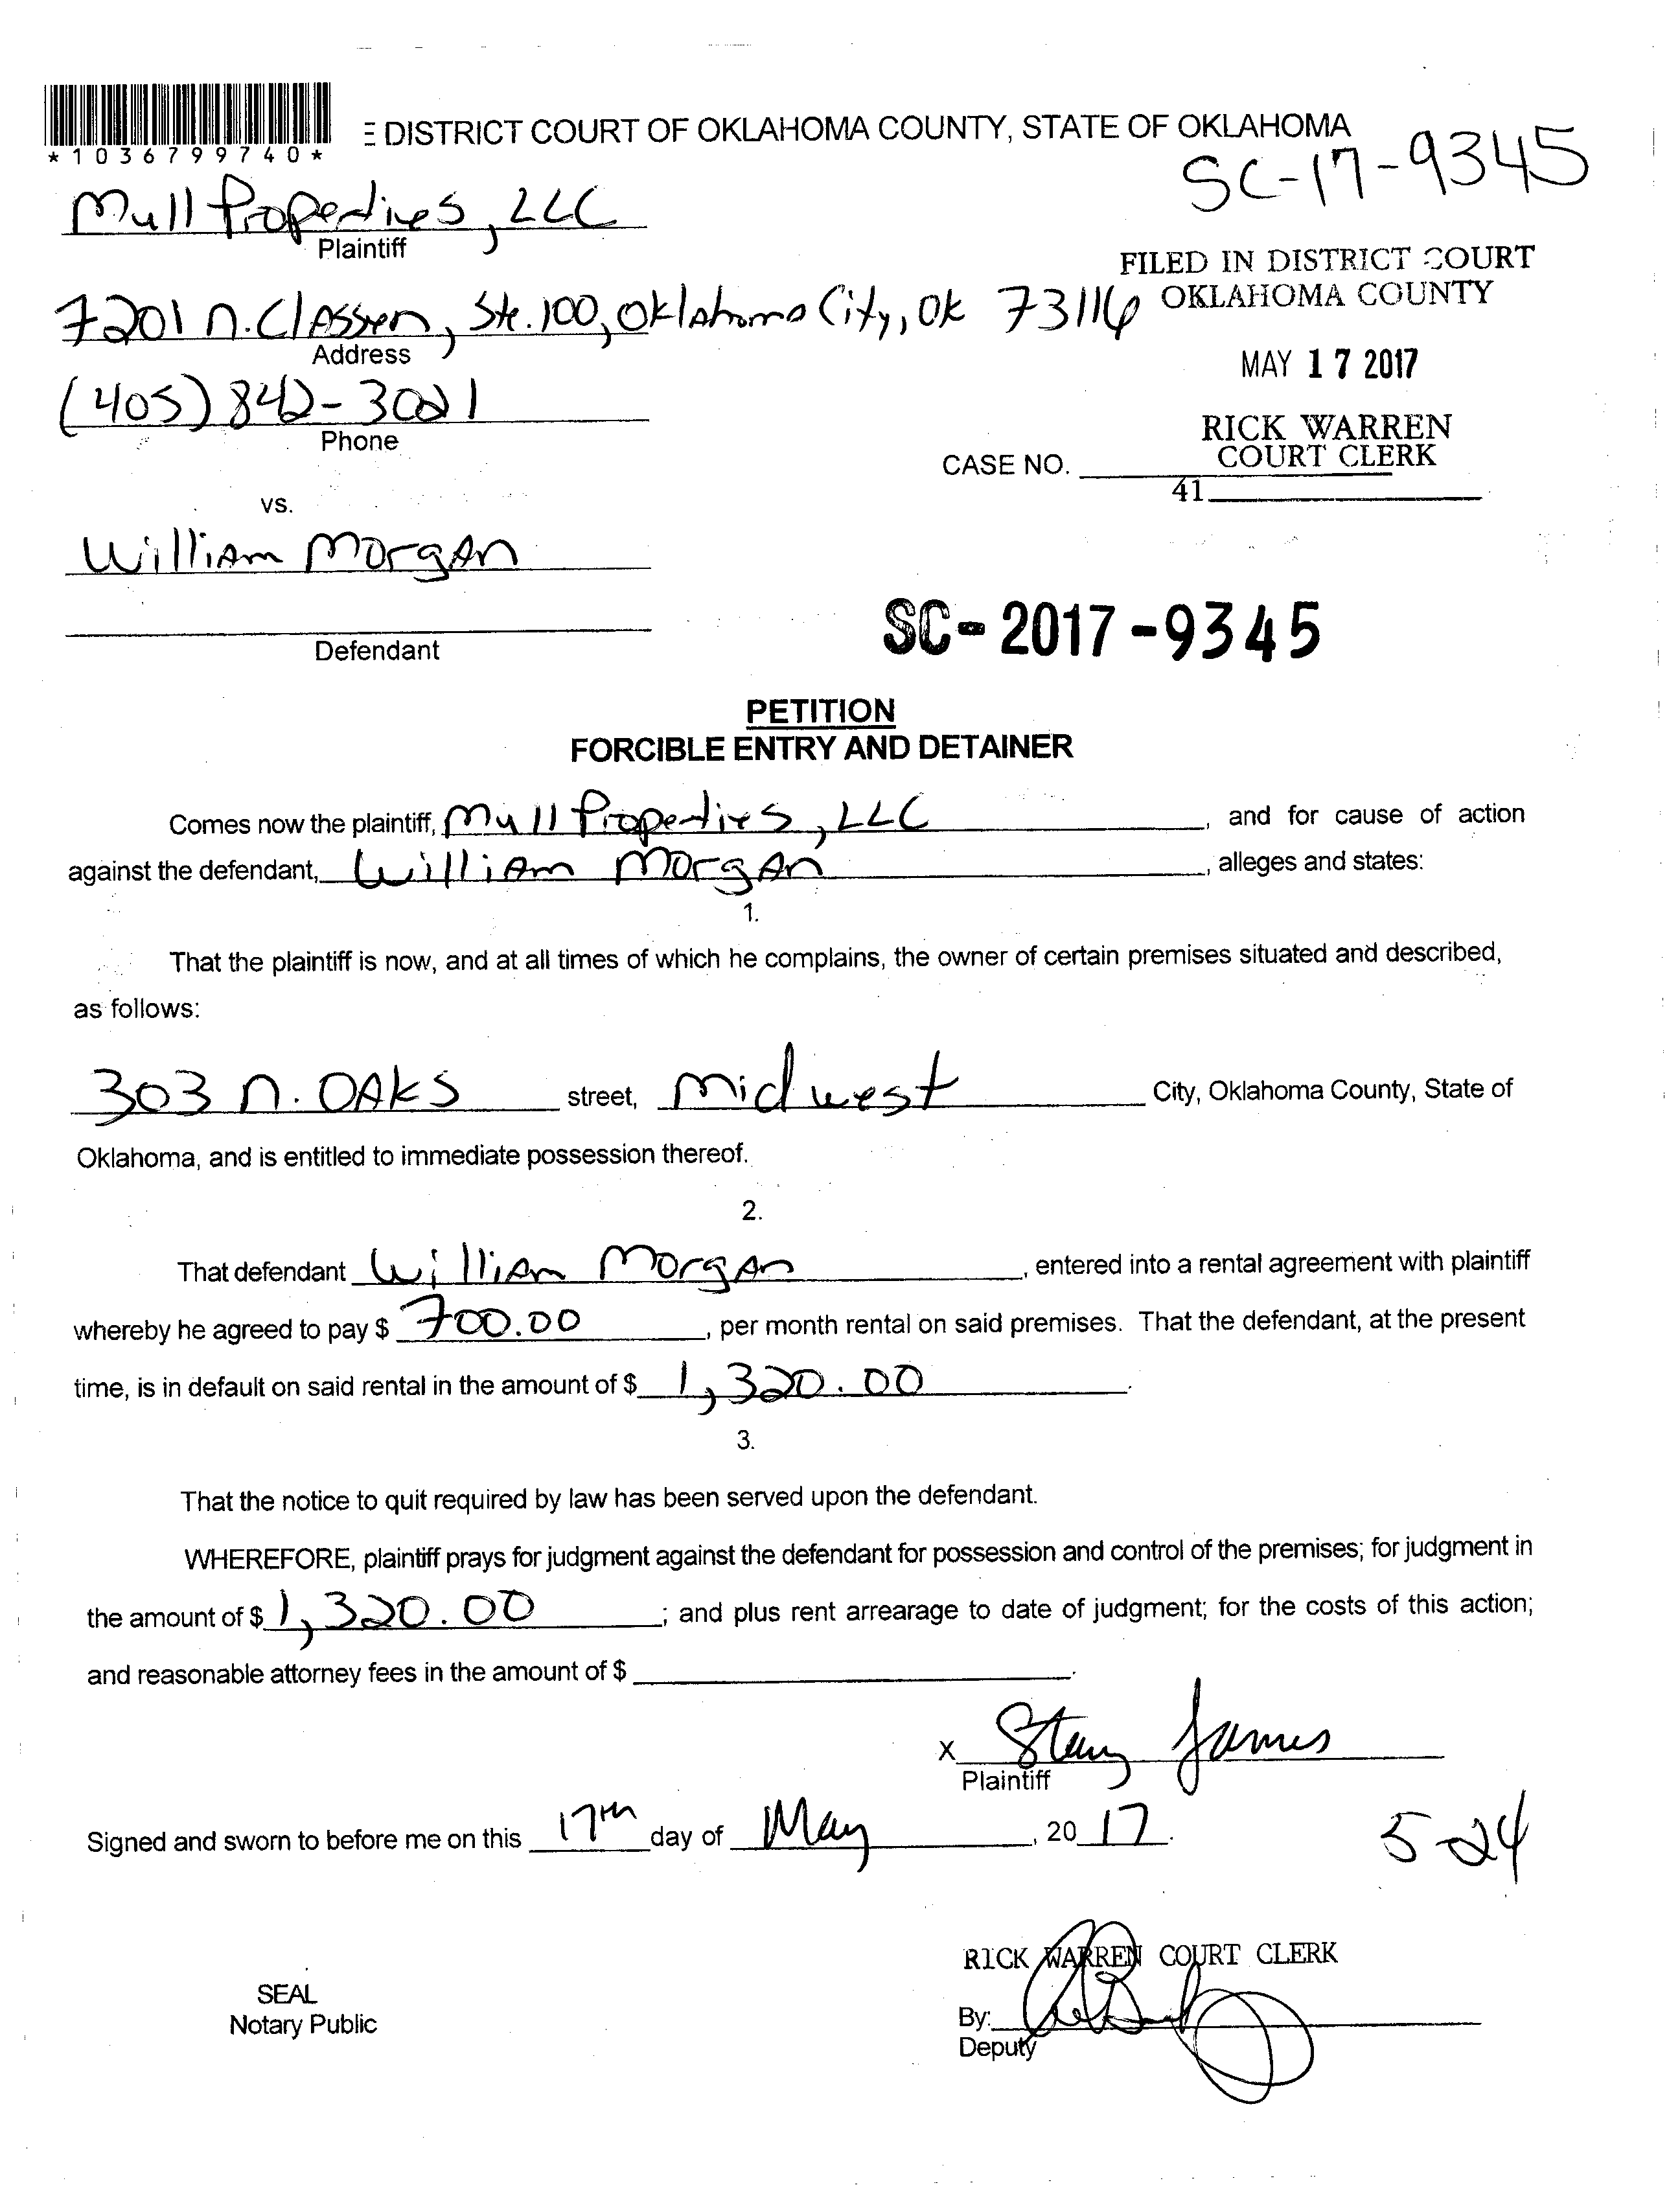 E DISTRICT COURT OF OKLAHOMA COUNTY, STATE OF OKLAHOMA
*1036799740*
SC-17-9345
Mull Properties, LLC
Plaintiff
FILED IN DISTRICT COURT
OKLAHOMA COUNTY
7201 N. Classen, Ste. 100, Oklahoma City, OK 73116
Address
MAY 17 2017
(405) 842-3021
Phone
RICK WARREN
COURT CLERK
CASE NO.
41
vs.
William Morgan
Defendant
SC-2017-9345
PETITION
FORCIBLE ENTRY AND DETAINER
Comes now the plaintiff, Mull Properties, LLC, and for cause of action
against the defendant, William Morgan, alleges and states:
1.
That the plaintiff is now, and at all times of which he complains, the owner of certain premises situated and described,
as follows:
303 N. OAKS street, Midwest City, Oklahoma County, State of
Oklahoma, and is entitled to immediate possession thereof.
2.
That defendant William Morgan, entered into a rental agreement with plaintiff
whereby he agreed to pay $ 700.00, per month rental on said premises. That the defendant, at the present
time, is in default on said rental in the amount of $ 1,320.00.
3.
That the notice to quit required by law has been served upon the defendant.
WHEREFORE, plaintiff prays for judgment against the defendant for possession and control of the premises; for judgment in
the amount of $ 1,320.00; and plus rent arrearage to date of judgment; for the costs of this action;
and reasonable attorney fees in the amount of $ .
X Stacy James
Plaintiff
Signed and sworn to before me on this 17th day of May, 20 17.
5-24
RICK WARREN COURT CLERK
SEAL
Notary Public
By:
Deputy